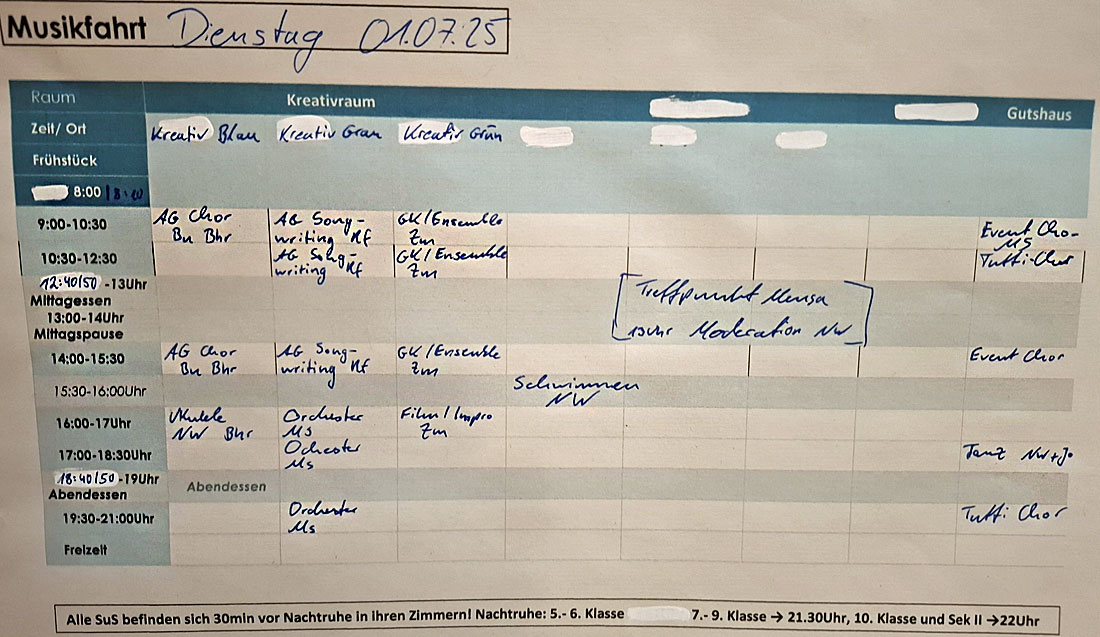 Musikfahrt Dienstag 01.07.25
Raum Kreativraum Gutshaus
Zeit/ Ort Kreativ Blau Kreativ Grau Kreativ Grün
Frühstück
8:00
9:00-10:30 AG Chor AG Song- GK/Ensemble Event Cho-
Bu Bhr writing Rf Zm MS
10:30-12:30 AG Song- GK/Ensemble Tutti-Chor
writing Rf Zm
12:40/50 -13Uhr Treffpunkt Mensa
Mittagessen
13:00-14Uhr 13Uhr Moderation NW
Mittagspause
14:00-15:30 AG Chor AG Song- GK/Ensemble Event Chor
Bu Bhr writing Rf Zm
15:30-16:00Uhr Schwimmen
NW
16:00-17Uhr Ukulele Orchester Film/Impro
NW Bhr Ms Zm
17:00-18:30Uhr Ochester Tanz NW+Jo
Ms
18:40/50 -19Uhr Abendessen
Abendessen
19:30-21:00Uhr Orchester Tutti Chor
Ms
Freizeit
Alle SuS befinden sich 30min vor Nachtruhe in ihren Zimmern! Nachtruhe: 5.- 6. Klasse 7.- 9. Klasse → 21.30Uhr, 10. Klasse und Sek II →22Uhr